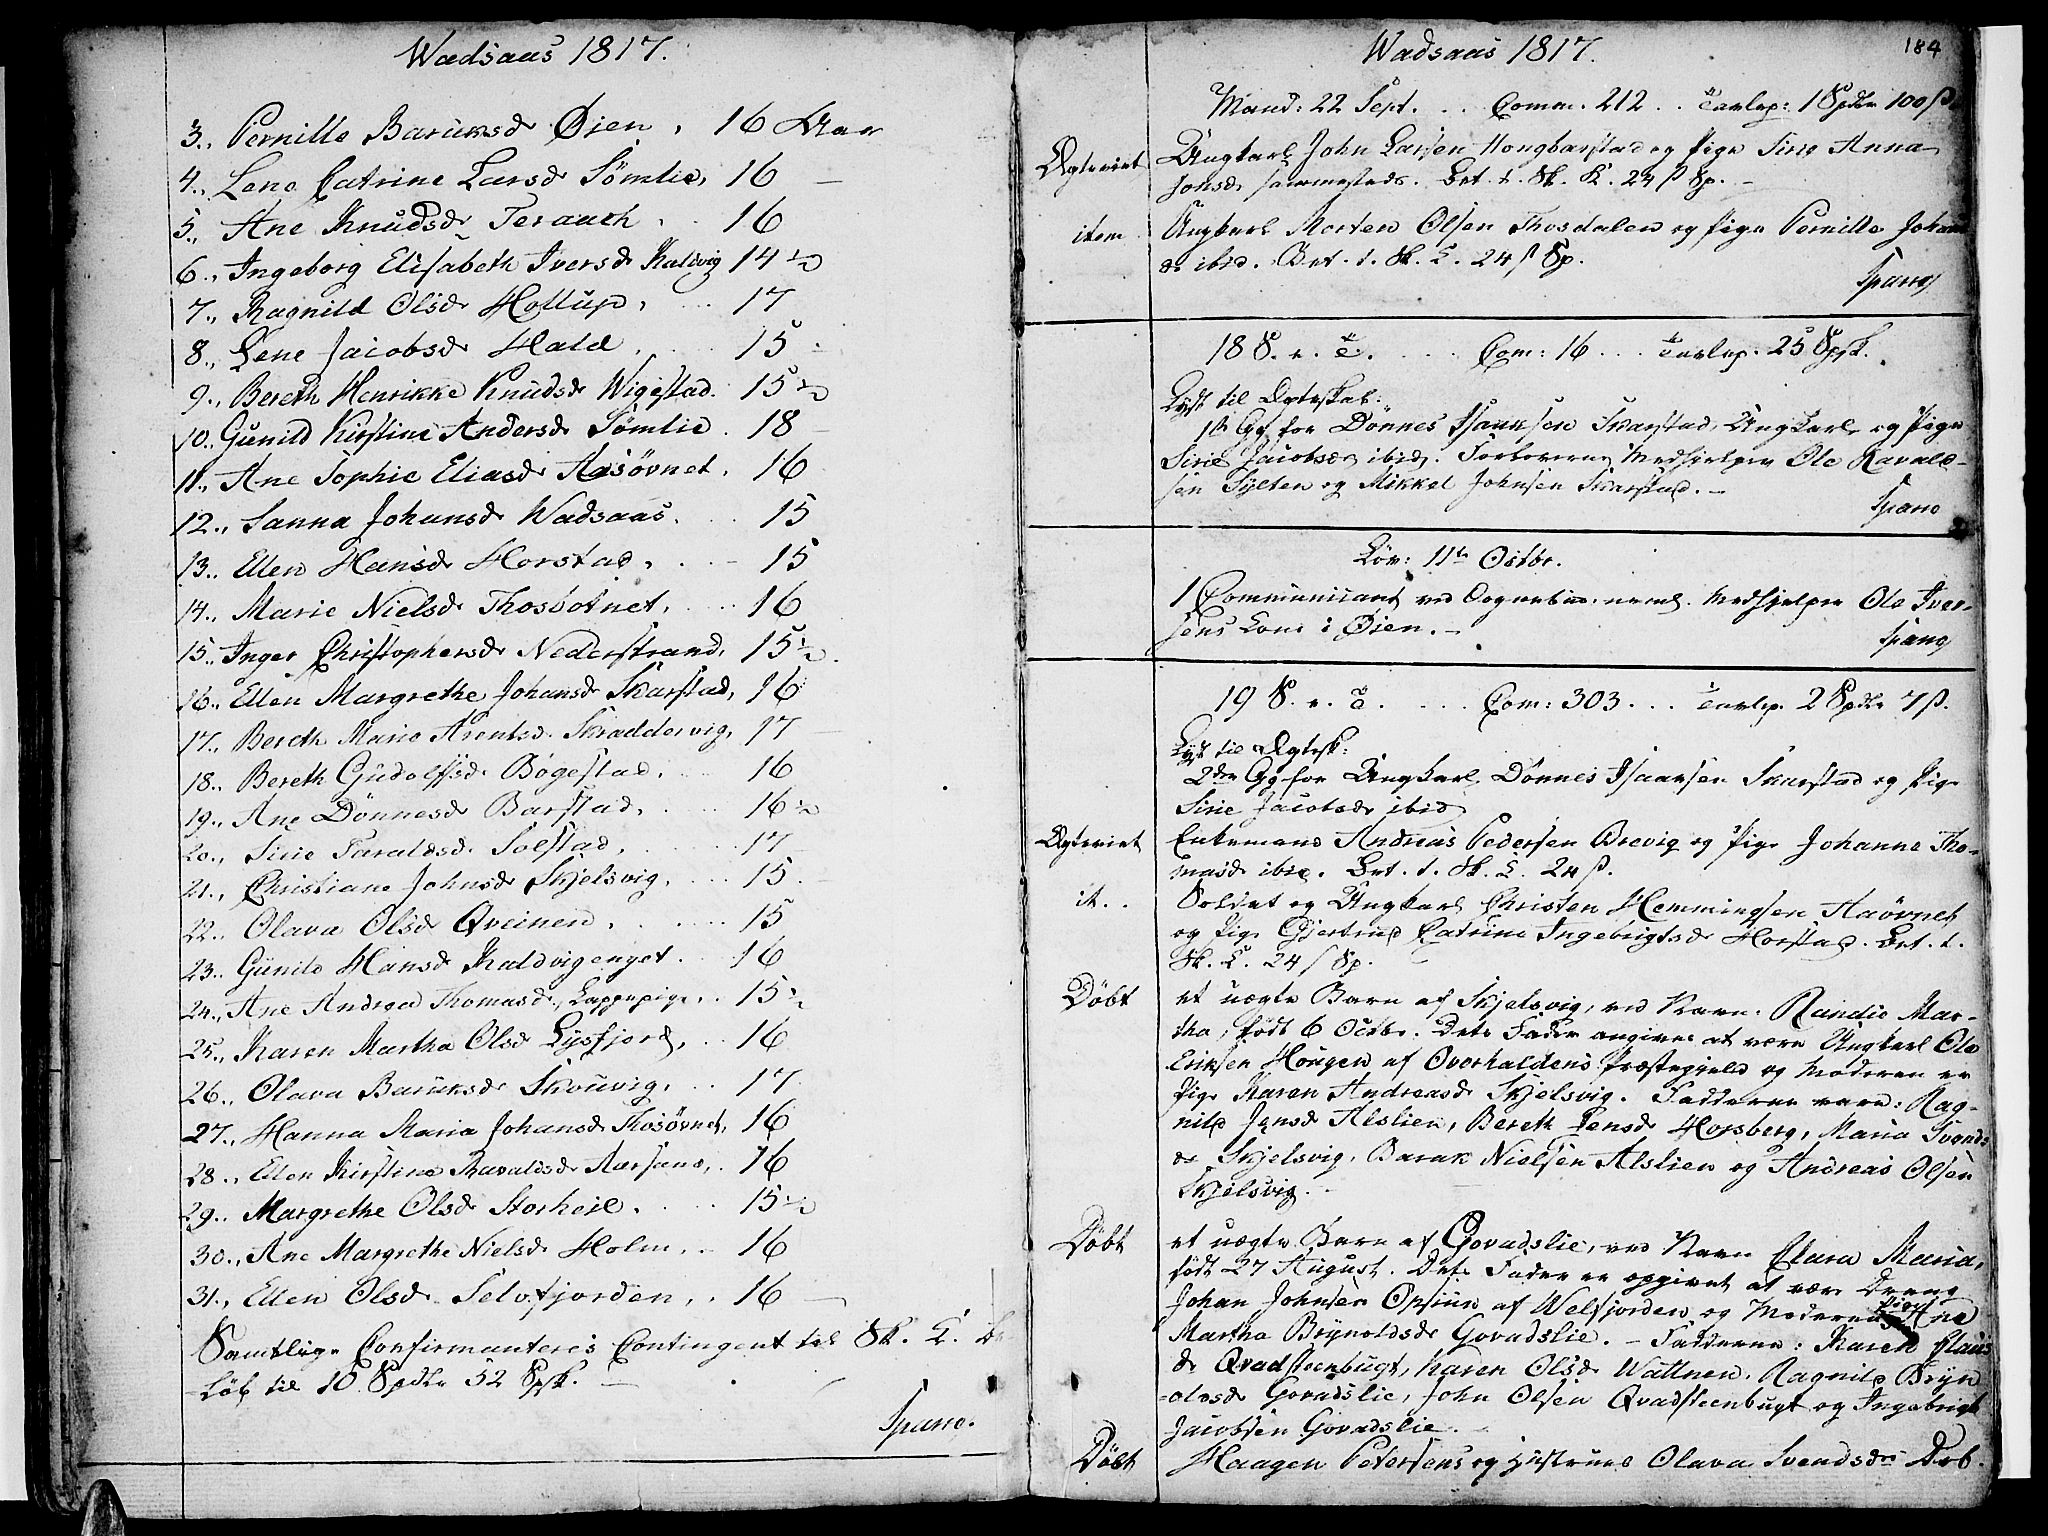 Wadsaas 1817.
3., Pernille Baruksdr Øien, 16 Aar
4., Lene Catrine Larsdr Sömlie, 16 —
5., Ane Knudsdr Teraach, 16
6., Ingeborg Elisabeth Iversdr Kaldvig 14½
7., Ragnild Olsdr Hollup, 17
8., Lene Jacobsdr Hald, 15
9., Bereth Henrikke Knudsdr Wigestad. 15½
10., Gunild Kirstine Andersdr Sömlie. 18 —
11., Ane Sophie Eliasdr Aasövnet. 16
12., Sanna Johansdr Wadsaas. 15
13., Ellen Hansdr Horstad, 15
14., Marie Nielsdr Thosbotnet, 16
15., Inger Christophersdr Nederstrand, 15½.
16., Ellen Margrethe Johansdr Skarstad, 16
17., Bereth Marie Arentsdr Skraddervig, 17 —
18., Bereth Gudolfsdr Bøgestad, 16
19., Ane Dönnesdr Barstad, 16½
20., Sirie Taraldsdr Solstad, 17
21., Christiane Johnsdr Skjelsvig, 15
22., Olava Olsdr Qveinen, 15
23., Gunild Hansdr Kaldvigenget. 16
24., Ane Andrea Thomasdr, Lappepige, 15½
25., Karen Martha Olsdr Lysfjord, 16
26., Olava Baruksdr Skouvig, 17
27., Hanna Maria Johansdr Thosövnet, 16
28., Ellen Kirstine Ravaldsdr Aarsand, 16
29., Margrethe Olsdr Storheil. 15½
30., Ane Margrethe Nielsdr Holm, 16
31., Ellen Olsdr Selvfjorden, 16 —
Samtlige Confirmanteres Contingent til Sk. C. be-
löb til 10 Spdlr 52 Spsk. —
Spano.
Wadsaas 1817.
184
Mand: 22 Sept. . . Comm. 212 . . Tavlep: 1 Spdlr 100 ß
Ægteviet Ungkarl John Larsen Hongbarstad og Pige Sirie Anna
Johsdr sammesteds. Bet. t. Sk. C. 24 ß Sp. —
item Ungkarl Morten Olsen Thosdalen og Pige Pernille Johans
dr ibid. Bet. t. Sk. C. 24 ß Sp.
Spang
18 S. e. T. . . . Com: 16 . . . Tavlep. 25 Spsk.
Lyst til Ægteskab:
1te Gg for Dönnes Isaaksen Skarstad, Ungkarl og Pige
Sirie Jacobsdr ibid. Forloverne Medhjelper Ole Ravald-
sen Sylten og Mikkel Johnsen Skarstad. —
Spano
Löv: 11te Octbr.
1 Communicant ved Sognebud. neml. Medhjelper Ole Iver-
sens Kone i Øien. —
Spang
19 S. e. T. . . . Com: 303 . . . Tavlep. 2 Spdlr 7 ß.
Lyst til Ægtesk:
2den Gg for Ungkarl Dönnes Isaaksen Skarstad og Pige
Sirie Jacobsdr ibid
Ægteviet Enkemand Andreas Pedersen Brevig og Pige Johanne Tho-
masdr ibid. Bet. t. Sk. C. 24 ß.
it. . Soldat og Ungkarl Christen Hemmingsen Aaövnet
og Pige Gjertrud Catrine Ingebrigtsdr Horstad. Bet. t.
Sk. C. 24 ß Sp.
Döbt et uægte Barn af Skjelsvig, ved Navn. Randie Mar-
tha, födt 6 Octbr. Dets Fader angives at være Ungkarl Ole
Eriksen Hougen af Overhaldens Præstegjeld og Moderen er
Pige Karen Andreasdr Skjelsvig. Fadderne vare: Rag-
nild Jensdr Alslien, Bereth Jensdr Horsberg, Maria Svends
dr Skjelsvig, Baruk Nielsen Alslien og Andreas Olsen
Skjelsvig.
Döbt et uægte Barn af Govadslie, ved Navn Clara Maria,
födt 27 August. Dets Fader er opgivet at være Dreng
Johan Johnsen Opsiun af Welfjorden og Moderen Pige Ane
Martha Brynoldsdr Govadslie. — Fadderne: Karen Claus
dr Qvadsteenbugt, Karen Olsdr Wattnen, Ragnild Bryn
-olsdr Govadslie, John Olsen Qvadsteenbugt og Ingebrigt
Jacobsen Govadslie.
Döbt Haagen Petersens og Hustrues Olava Svendsdr Drb.